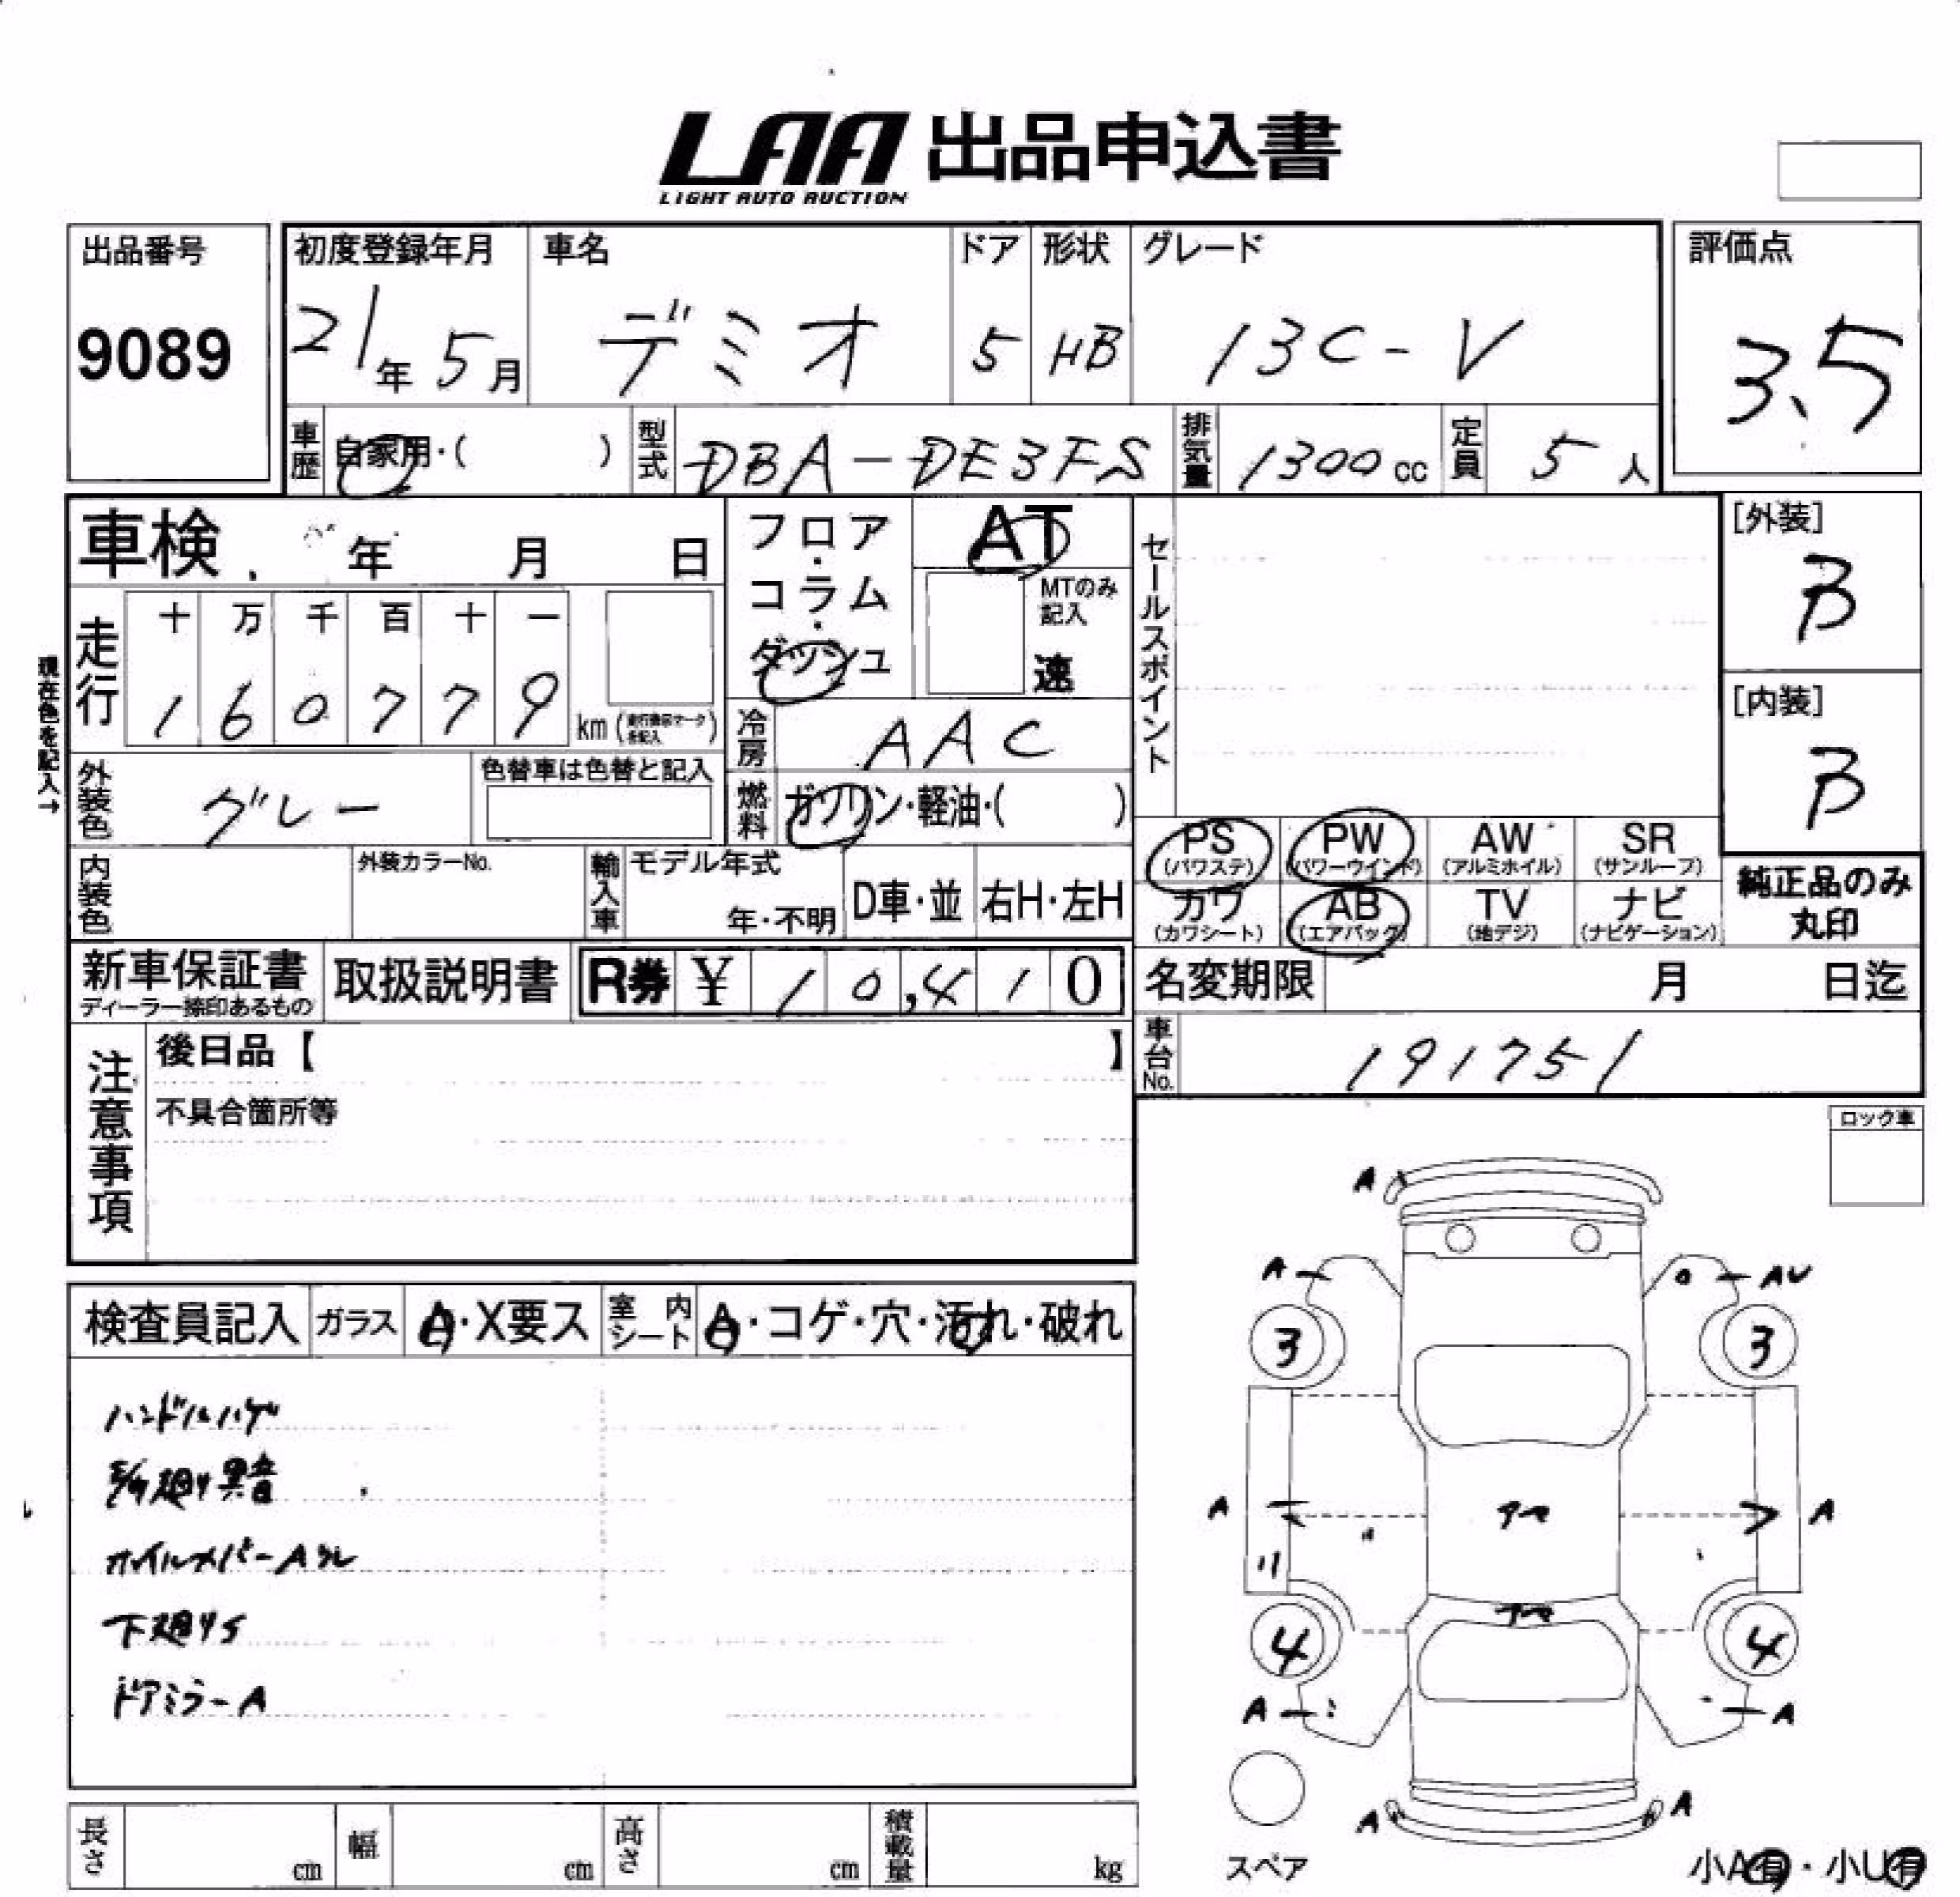 LAA 出品申込書
LIGHT AUTO AUCTION
出品番号
9089
初度登録年月
21年 5月
車名
デミオ
ドア
5
形状
HB
グレード
13C-V
評価点
3.5
車歴
自家用・( )
型式
DBA-DE3FS
排気量
1300cc
定員
5人
車検 年 月 日
フロア・コラム・ダッシュ
AT
MTのみ記入
速
セールスポイント
[外装]
B
[内装]
B
現在色を記入→
走行
十 万 千 百 十 一
1 6 0 7 7 9 km
冷房
AAC
外装色
グレー
色替車は色替と記入
燃料
ガソリン・軽油・( )
PS (パワステ)
PW (パワーウインド)
AW (アルミホイル)
SR (サンルーフ)
カワ (カワシート)
AB (エアバック)
TV (地デジ)
ナビ (ナビゲーション)
純正品のみ
丸印
内装色
外装カラーNo.
輸入車
モデル年式
年・不明
D車・並
右H・左H
新車保証書
ディーラー捺印あるもの
取扱説明書
R券 ¥ 10,410
名変期限 月 日迄
車台No.
191751
注意事項
後日品【 】
不具合箇所等
ロック車
検査員記入
ガラス
A・X要ス
室内シート
A・コゲ・穴・汚れ・破れ
ハンドルハゲ
異音
ホイルカバーA
下廻りS
ドアミラーA
A
A
AU
3
3
A
A
4
4
A
A
A
A
スペア
小A有・小U有
長さ cm
幅 cm
高さ cm
積載量 kg